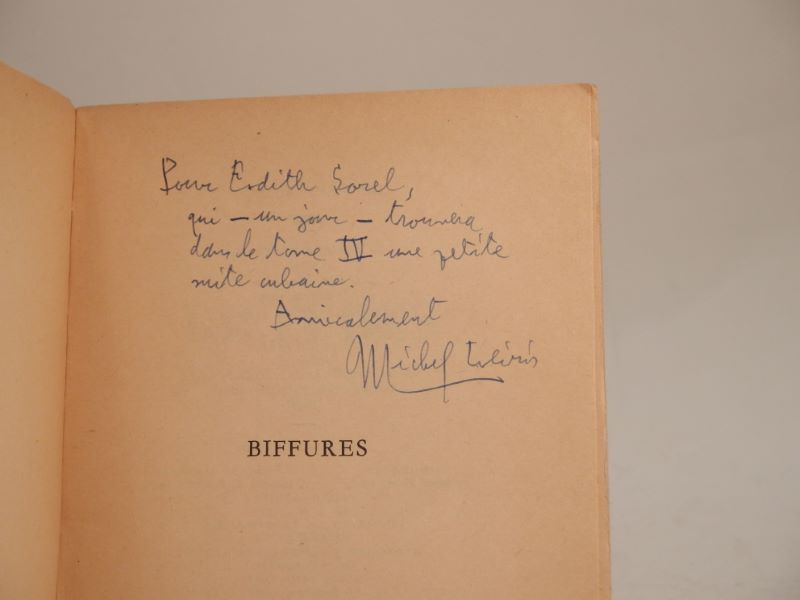 Pour Edith Sorel,
qui — un jour — trouvera
dans le tome IV une petite
suite cubaine.
Amicalement
Michel Leiris
BIFFURES